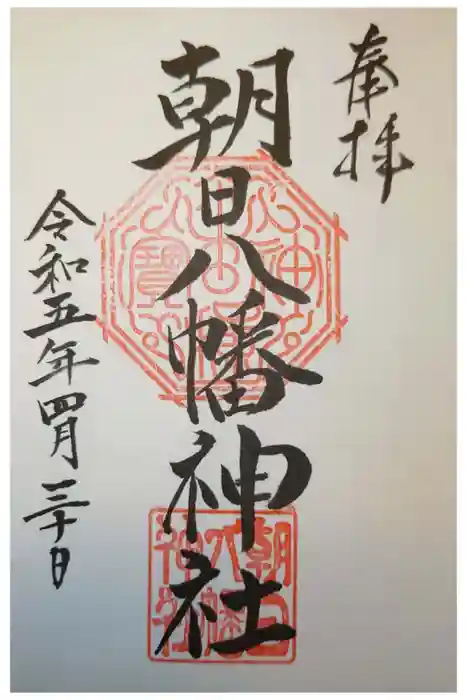 奉拝
朝日八幡神社
令和五年四月三十日
朝日
八幡
神社